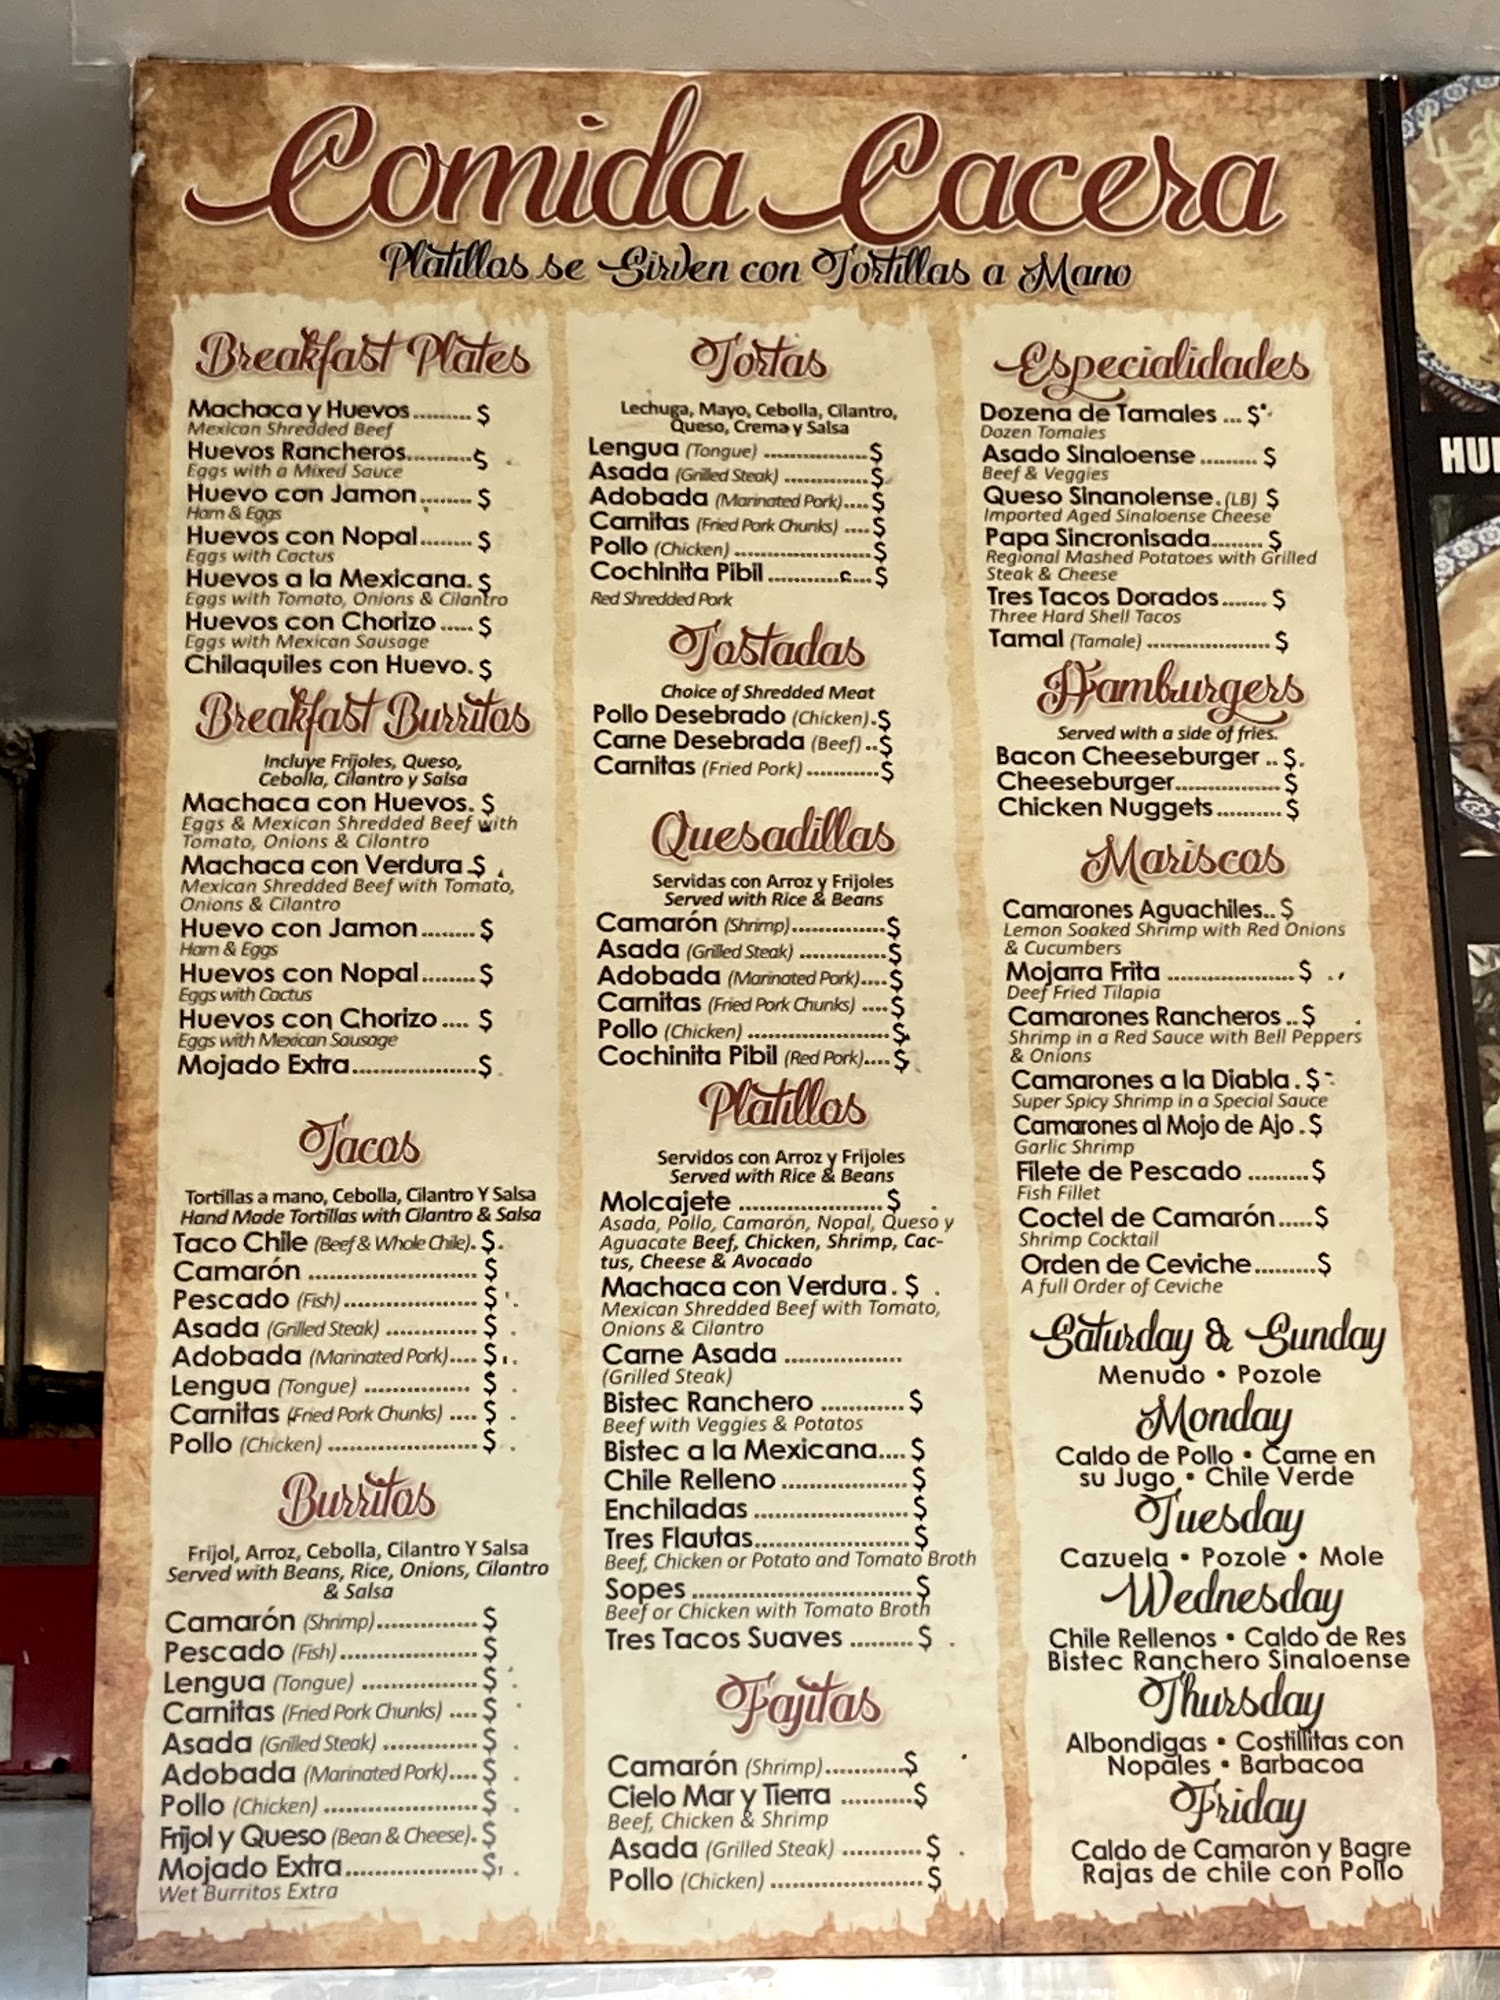 Comida Cacera
Platillos se Sirven con Tortillas a Mano
Breakfast Plates
Machaca y Huevos......... $
Mexican Shredded Beef
Huevos Rancheros.......... $
Eggs with a Mixed Sauce
Huevo con Jamon........ $
Ham & Eggs
Huevos con Nopal........ $
Eggs with Cactus
Huevos a la Mexicana. $
Eggs with Tomato, Onions & Cilantro
Huevos con Chorizo ..... $
Eggs with Mexican Sausage
Chilaquiles con Huevo. $
Breakfast Burritos
Incluye Frijoles, Queso,
Cebolla, Cilantro y Salsa
Machaca con Huevos. $
Eggs & Mexican Shredded Beef with
Tomato, Onions & Cilantro
Machaca con Verdura .$
Mexican Shredded Beef with Tomato,
Onions & Cilantro
Huevo con Jamon........ $
Ham & Eggs
Huevos con Nopal........ $
Eggs with Cactus
Huevos con Chorizo .... $
Eggs with Mexican Sausage
Mojado Extra................... $
Tacos
Tortillas a mano, Cebolla, Cilantro Y Salsa
Hand Made Tortillas with Cilantro & Salsa
Taco Chile (Beef & Whole Chile). $
Camarón .......................... $
Pescado (Fish)..................... $
Asada (Grilled Steak) .............. $
Adobada (Marinated Pork).... $
Lengua (Tongue) ................ $
Carnitas (Fried Pork Chunks) .... $
Pollo (Chicken) ....................... $
Burritos
Frijol, Arroz, Cebolla, Cilantro Y Salsa
Served with Beans, Rice, Onions, Cilantro
& Salsa
Camarón (Shrimp).................. $
Pescado (Fish)..................... $
Lengua (Tongue) .................. $
Carnitas (Fried Pork Chunks) .... $
Asada (Grilled Steak) .............. $
Adobada (Marinated Pork).... $
Pollo (Chicken) ....................... $
Frijol y Queso (Bean & Cheese). $
Mojado Extra.................... $
Wet Burritos Extra
Tortas
Lechuga, Mayo, Cebolla, Cilantro,
Queso, Crema y Salsa
Lengua (Tongue) .................. $
Asada (Grilled Steak) .............. $
Adobada (Marinated Pork).... $
Carnitas (Fried Pork Chunks) .... $
Pollo (Chicken) ....................... $
Cochinita Pibil ................ $
Red Shredded Pork
Tostadas
Choice of Shredded Meat
Pollo Desebrado (Chicken). $
Carne Desebrada (Beef) .. $
Carnitas (Fried Pork) ............ $
Quesadillas
Servidas con Arroz y Frijoles
Served with Rice & Beans
Camarón (Shrimp)............... $
Asada (Grilled Steak) .............. $
Adobada (Marinated Pork).... $
Carnitas (Fried Pork Chunks) .... $
Pollo (Chicken) ....................... $
Cochinita Pibil (Red Pork).... $
Platillos
Servidos con Arroz y Frijoles
Served with Rice & Beans
Molcajete ...................... $
Asada, Pollo, Camarón, Nopal, Queso y
Aguacate Beef, Chicken, Shrimp, Cac-
tus, Cheese & Avocado
Machaca con Verdura . $
Mexican Shredded Beef with Tomato,
Onions & Cilantro
Carne Asada ..................
(Grilled Steak)
Bistec Ranchero ............. $
Beef with Veggies & Potatos
Bistec a la Mexicana.... $
Chile Relleno .................... $
Enchiladas ........................ $
Tres Flautas........................ $
Beef, Chicken or Potato and Tomato Broth
Sopes .................................. $
Beef or Chicken with Tomato Broth
Tres Tacos Suaves ......... $
Fajitas
Camarón (Shrimp)............ $
Cielo Mar y Tierra .......... $
Beef, Chicken & Shrimp
Asada (Grilled Steak) ............ $
Pollo (Chicken) ....................... $
Especialidades
Dozena de Tamales ... $
Dozen Tomales
Asado Sinaloense ......... $
Beef & Veggies
Queso Sinanolense. (LB) $
Imported Aged Sinaloense Cheese
Papa Sincronisada........ $
Regional Mashed Potatoes with Grilled
Steak & Cheese
Tres Tacos Dorados....... $
Three Hard Shell Tacos
Tamal (Tamale) .................... $
Hamburgers
Served with a side of fries.
Bacon Cheeseburger .. $
Cheeseburger................. $
Chicken Nuggets........... $
Mariscos
Camarones Aguachiles.. $
Lemon Soaked Shrimp with Red Onions
& Cucumbers
Mojarra Frita .................... $
Deef Fried Tilapia
Camarones Rancheros .. $
Shrimp in a Red Sauce with Bell Peppers
& Onions
Camarones a la Diabla . $
Super Spicy Shrimp in a Special Sauce
Camarones al Mojo de Ajo . $
Garlic Shrimp
Filete de Pescado .......... $
Fish Fillet
Coctel de Camarón..... $
Shrimp Cocktail
Orden de Ceviche......... $
A full Order of Ceviche
Saturday & Sunday
Menudo • Pozole
Monday
Caldo de Pollo • Carne en
su Jugo • Chile Verde
Tuesday
Cazuela • Pozole • Mole
Wednesday
Chile Rellenos • Caldo de Res
Bistec Ranchero Sinaloense
Thursday
Albondigas • Costillitas con
Nopales • Barbacoa
Friday
Caldo de Camaron y Bagre
Rajas de chile con Pollo